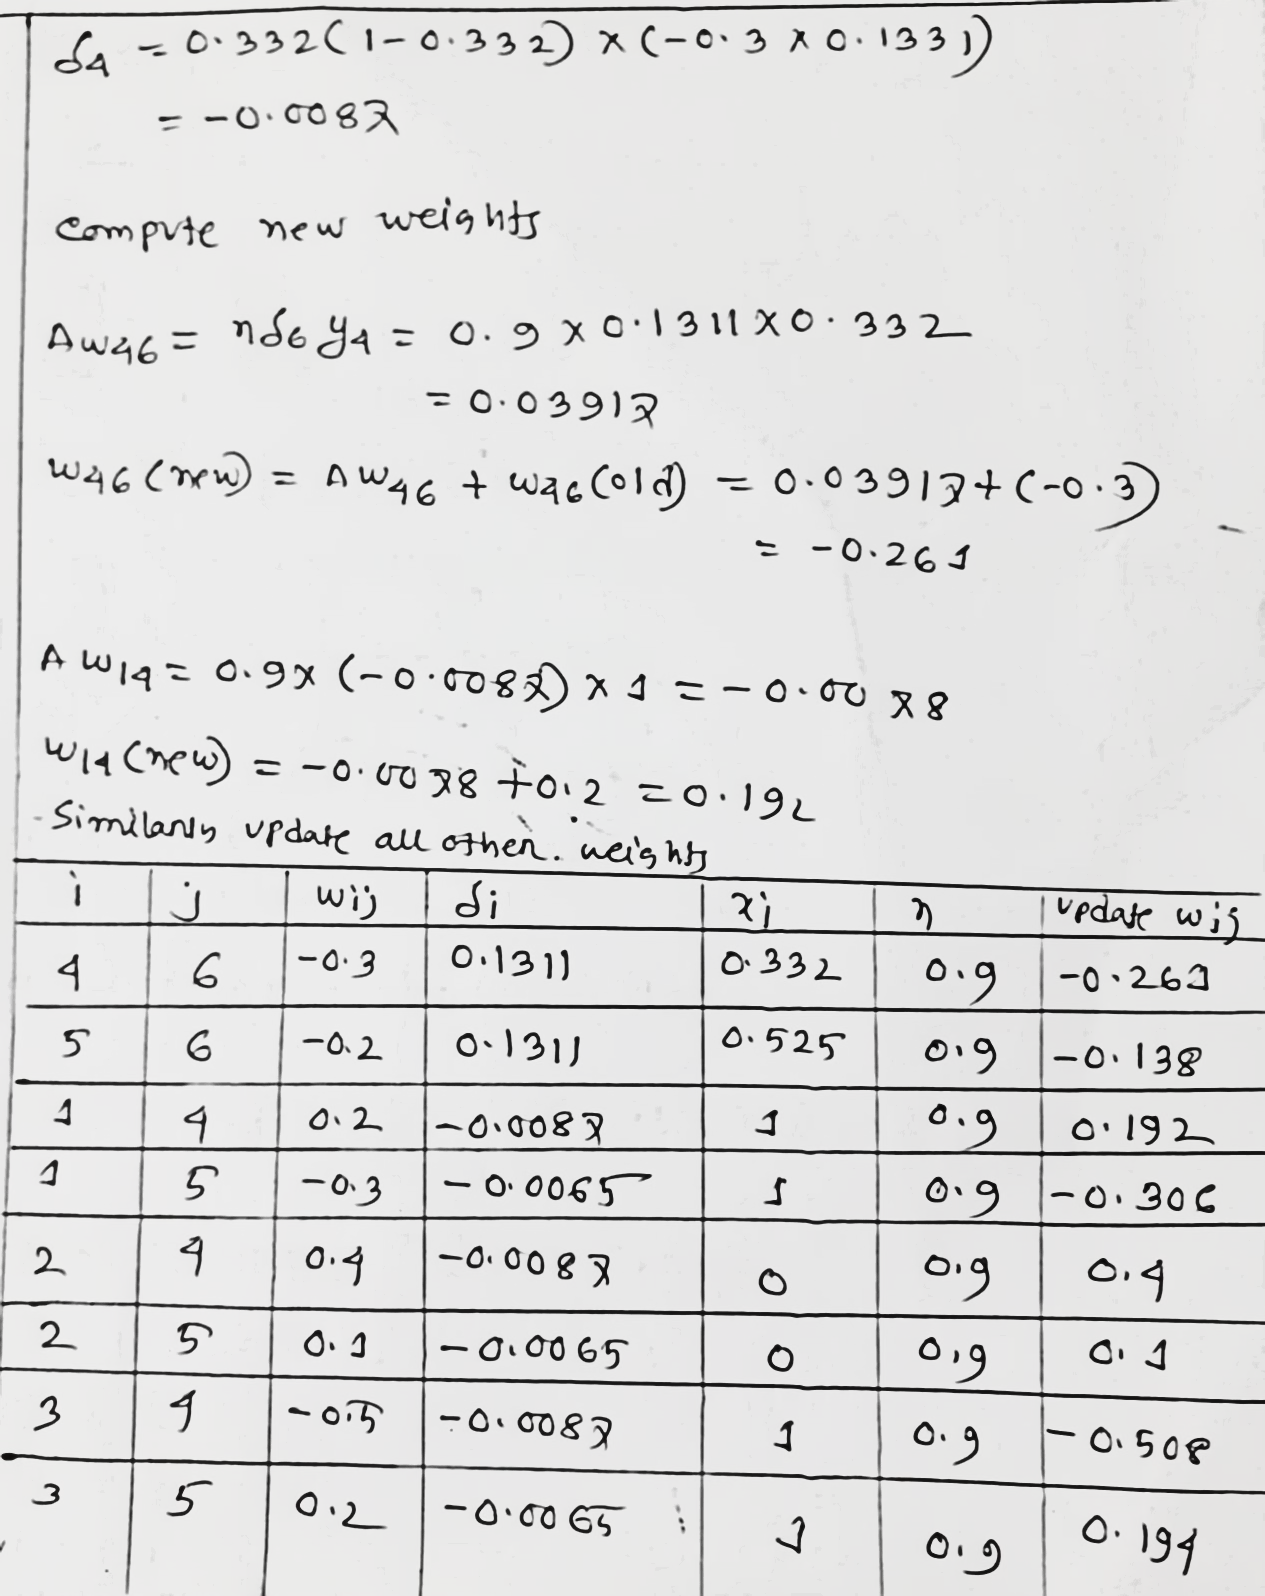 δ4 = 0.332(1-0.332) x (-0.3 x 0.1331)
= -0.0087
compute new weights
Δw46 = ηδ6 y4 = 0.9 x 0.1311 x 0.332
= 0.03917
w46 (new) = Δw46 + w46(old) = 0.03917+(-0.3)
= -0.261
Δw14 = 0.9x (-0.0087) x 1 = -0.0078
w14 (new) = -0.0078 +0.2 = 0.192
Similarly update all other. weights
i j wij δi xi η update wij
4 6 -0.3 0.1311 0.332 0.9 -0.261
5 6 -0.2 0.1311 0.525 0.9 -0.138
1 4 0.2 -0.0087 1 0.9 0.192
1 5 -0.3 -0.0065 1 0.9 -0.306
2 4 0.4 -0.0087 0 0.9 0.4
2 5 0.1 -0.0065 0 0.9 0.1
3 4 -0.5 -0.0087 1 0.9 -0.508
3 5 0.2 -0.0065 1 0.9 0.194